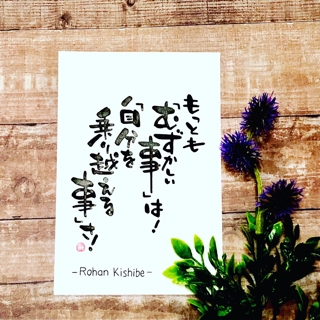 もっとも
「むずかしい
事」は!
「自分を
乗り越える
事」さ!
-Rohan Kishibe-